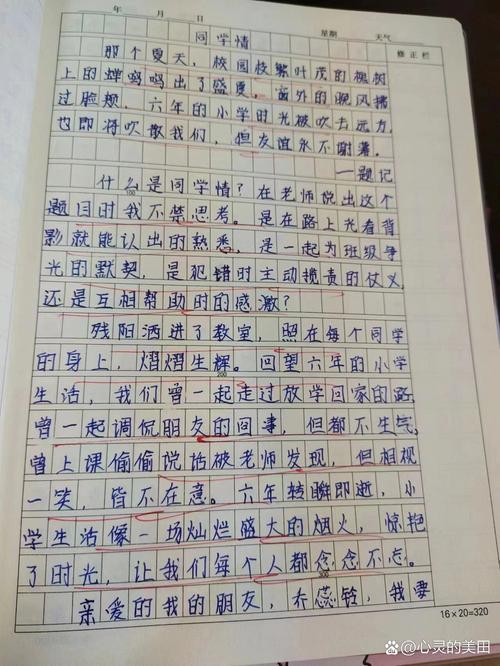 年 月 日 星期 天气
同学情
修正栏
那个夏天，校园枝繁叶茂的槐树
上的蝉鸣鸣出了盛夏，窗外的晚风拂
过脸颊，六年的小学时光被吹去远方，
也即将吹散我们，但友谊永不谢幕。
——题记
什么是同学情？在老师说出这个
题目时我不禁思考。是在路上光看背
影就能认出的熟悉，是一起为班级争
光的默契，是犯错时主动揽责的仗义，
还是互相帮助时的感激？
残阳洒进了教室，照在每个同学
的身上，熠熠生辉。回望六年的小学
生活，我们曾一起走过放学回家的路，
曾一起调侃朋友的囧事，但都不生气，
曾上课偷偷说话被老师发现，但相视
一笑，皆不在意。六年转瞬即逝，小
学生活像一场灿烂盛大的烟火，惊艳
了时光，让我们每个人都念念不忘。
亲爱的我的朋友，乔蕊铃，我要
100
200
300
16×20=320
@心灵的美田